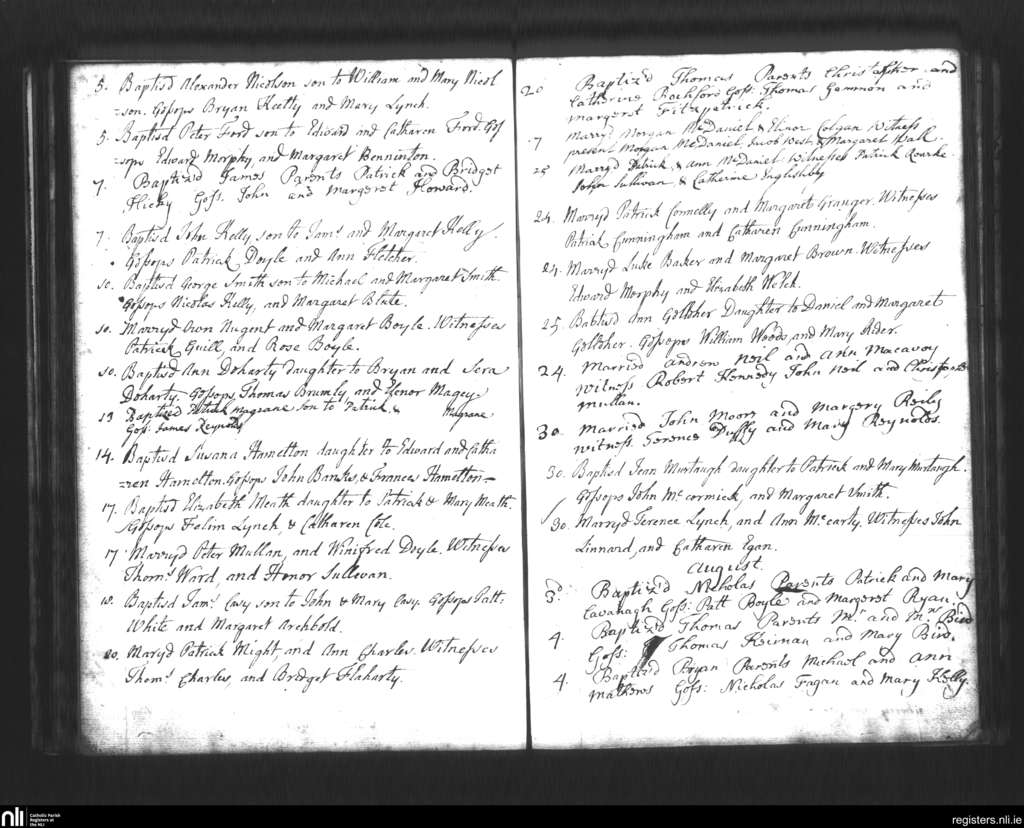 5. Baptisd Alexander Nicolson son to William and Mary Nicol
=son. Gossops Bryan Keelly and Mary Lynch.
5. Baptisd Peter Ford son to Edward and Catharen Ford. Gos
=sops Edward Morphy, and Margaret Bennington.
7. Baptizd James Parents Patrick and Bridget
Hicky Goss. John and Margeret Howard.
7. Baptisd John Kelly son to Jams and Margaret Kelly.
Gossops Patrick Doyle and Ann Fletcher.
10. Baptisd George Smith son to Michael and Margaret Smith.
Gossops Nicolas Kelly, and Margaret
10. Marryd Own Nugent and Margaret Boyle. Witnesses
Patrick Guill, and Rose Boyle.
10. Baptisd Ann Doherty daughter to Bryan and Sera
Doharty. Gossops Thomas Brumly and Elenor Magey
13 Baptized Patrick Magrane son to Patrick & Magrane
Goss: James Reynolds
14. Baptisd Susana Hamelton daughter to Edward and Catha
=ren Hamelton. Gossops John Bankes, & Frances Hamelton
17. Baptisd Elizabeth Meath daughter to Patrick & Mary Meath.
Gossops Felim Lynch, & Catharen Cole.
17 Marryd Peter Mullan, and Winifred Doyle. Witnesses
Thoms Ward, and Honor Sullevan.
18. Baptisd Jams Casy son to John & Mary Casy. Gossops Patt:
White and Margaret Archbold.
20. Maryd Patrick Might, and Ann Charles. Witnesses
Thoms Charles, and Bredget Flaharty.
20 Baptiz'd Thomas Parents Christopher and
Catherine Rochford Goss: Thomas Gammon and
Margerst Fitzpatrick.
7 Marryd Morgan McDaniel & Elinor Colgan Witness
present Morgan McDaniel, Jacob West & Margaret Hall
25 Marryd Patrick & Ann McDaniel Witnesses Patrick Rourke
John Sullivan & Catherine Inglishby
24. Marryd Patrick Connelly and Margaret Granger. Witnesses
Patrick Cunningham and Catharen Cunningham.
24. Marryd Luke Baker and Margaret Brown. Witnesses
Edward Morphy and Elezabeth Welch.
25. Babtisd Ann Golesher Daughter to Daniel and Margaret
Golesher. Gossops William Woods, and Mary Rider.
24. Married Andrew Neil and Ann Macavoy
Witness Robert Kennedy John Neil and Christopher
Mullan.
30. Married John Moore and Margery Reily
Witness. Terence Duffy and Mary Reynolds.
30. Baptisd Jean Murtaugh daughter to Patrick and Mary Murtaugh.
Gossops John McCormick, and Margaret Smith.
30. Marryd Terence Lynch, and Ann McCarty. Witnesses John
Linnard, and Catharen Egan.
August.
3. Baptiz'd Nicholas Parents Patrick and Mary
Cavanagh Goss: Patt Boyle and Margeret Ryan.
4. Baptiz'd Thomas Parents Mr. and Mrs. Bird
Goss: Thomas Keirnan and Mary Bird.
4. Baptizd Bryan Parents Michael and Ann
Mathews Goss: Nicholas Fagan and Mary Kelly.
nli
Catholic Parish
Registers at
the NLI
registers.nli.ie